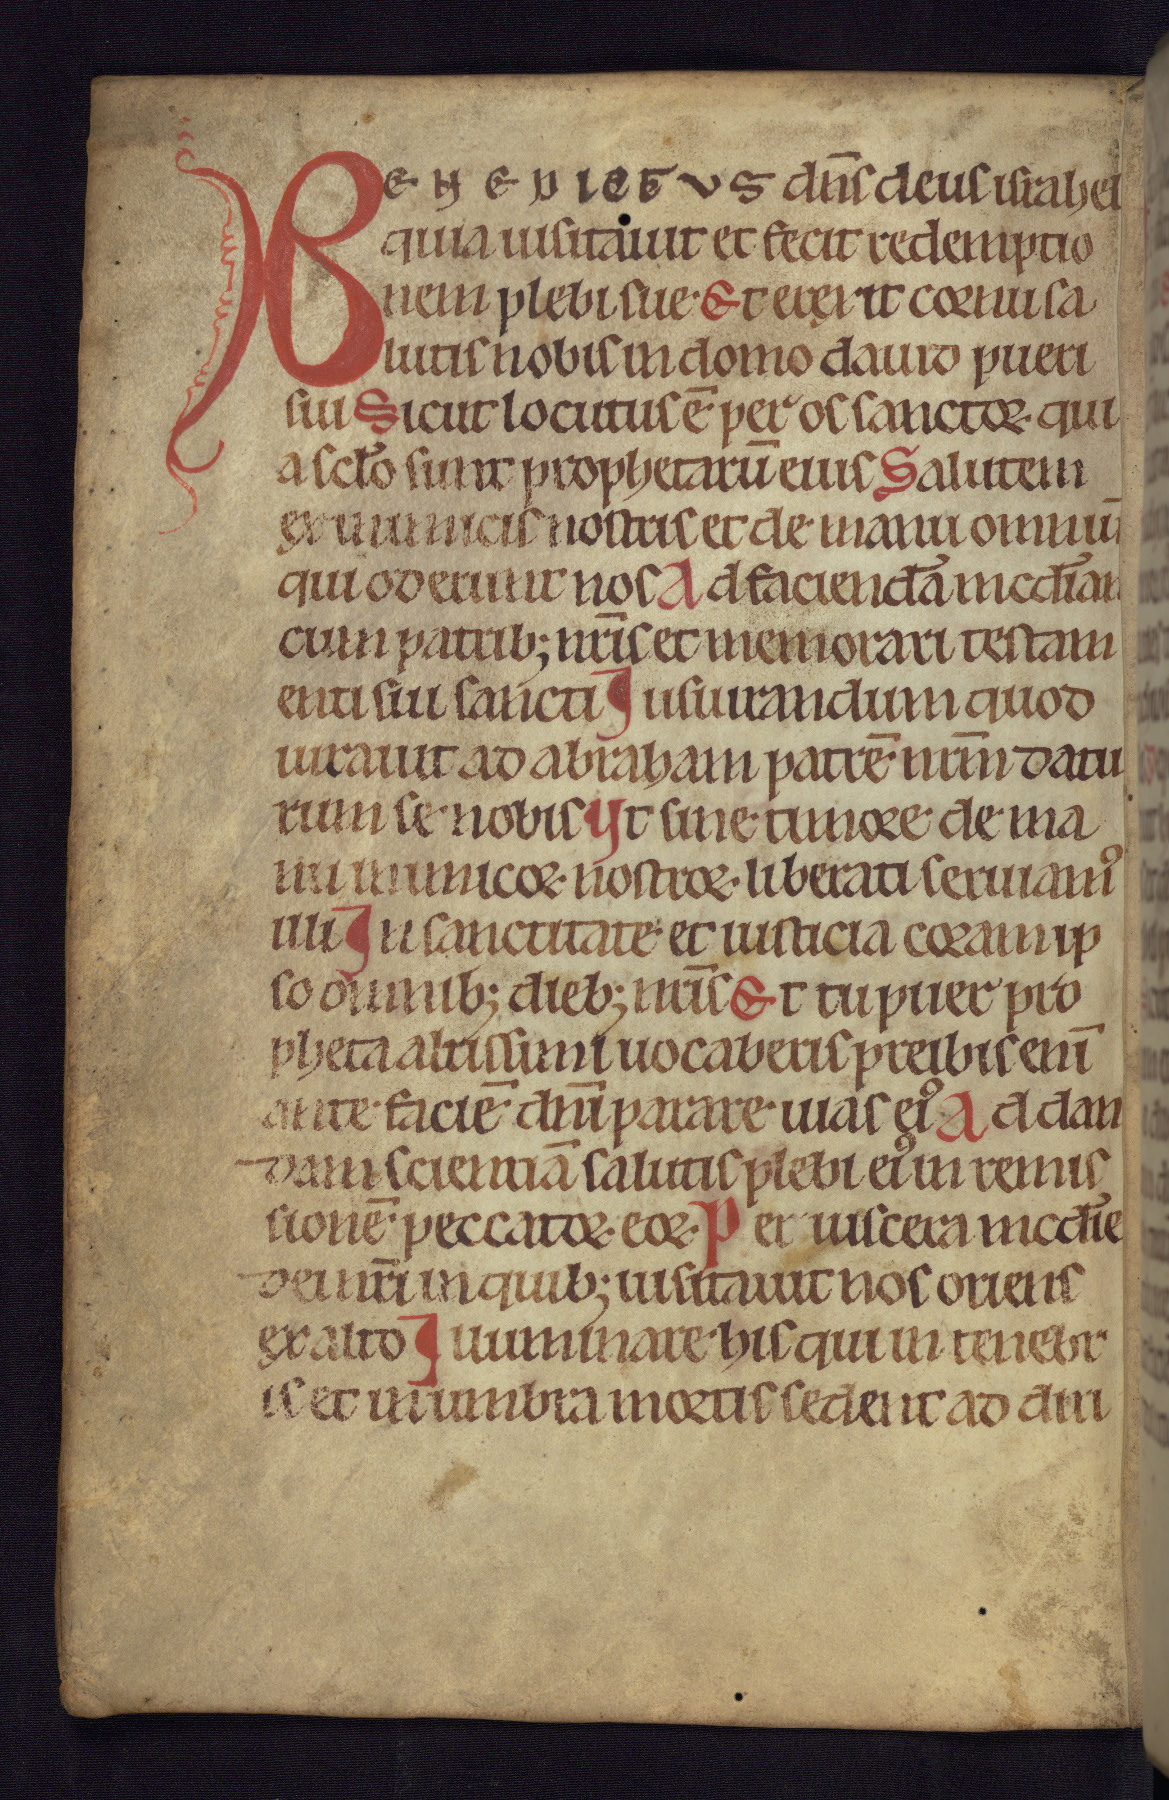 BENEDICTUS dn̄s deus israhel
quia uisitauit et fecit redemptio
nem plebi sue· Et erexit cornu sa
lutis nobis in domo dauid pueri
sui Sicut locutus ē per os sanctoꝝ qui
a sclo sunt prophetarū eius Salutem
ex inimicis nostris et de manu omniū
qui oderunt nos Ad faciendā mcdiam
cum patrib; nr̄is et memorari testam
enti sui sancti Iusiurandum quod
iurauit ad abraham patrē nrm̄ datu
rum se nobis Ut sine timore de ma
nu inimicoꝝ nostroꝝ liberati seruiamꝰ
illi In sanctitate et iusticia coram ip
so omnib; dieb; nr̄is Et tu puer pro
pheta altissimi uocaberis preibis enī
ante faciē dnī parare uias eiꝰ Ad dan
dam scientiā salutis plebi eiꝰ in remis
sionē peccatoꝝ eoꝝ Per uiscera mcdie
dei nr̄i in quib; uisitauit nos oriens
ex alto Iluminare his qui in tenebr
is et in umbra mortis sedent ad diri